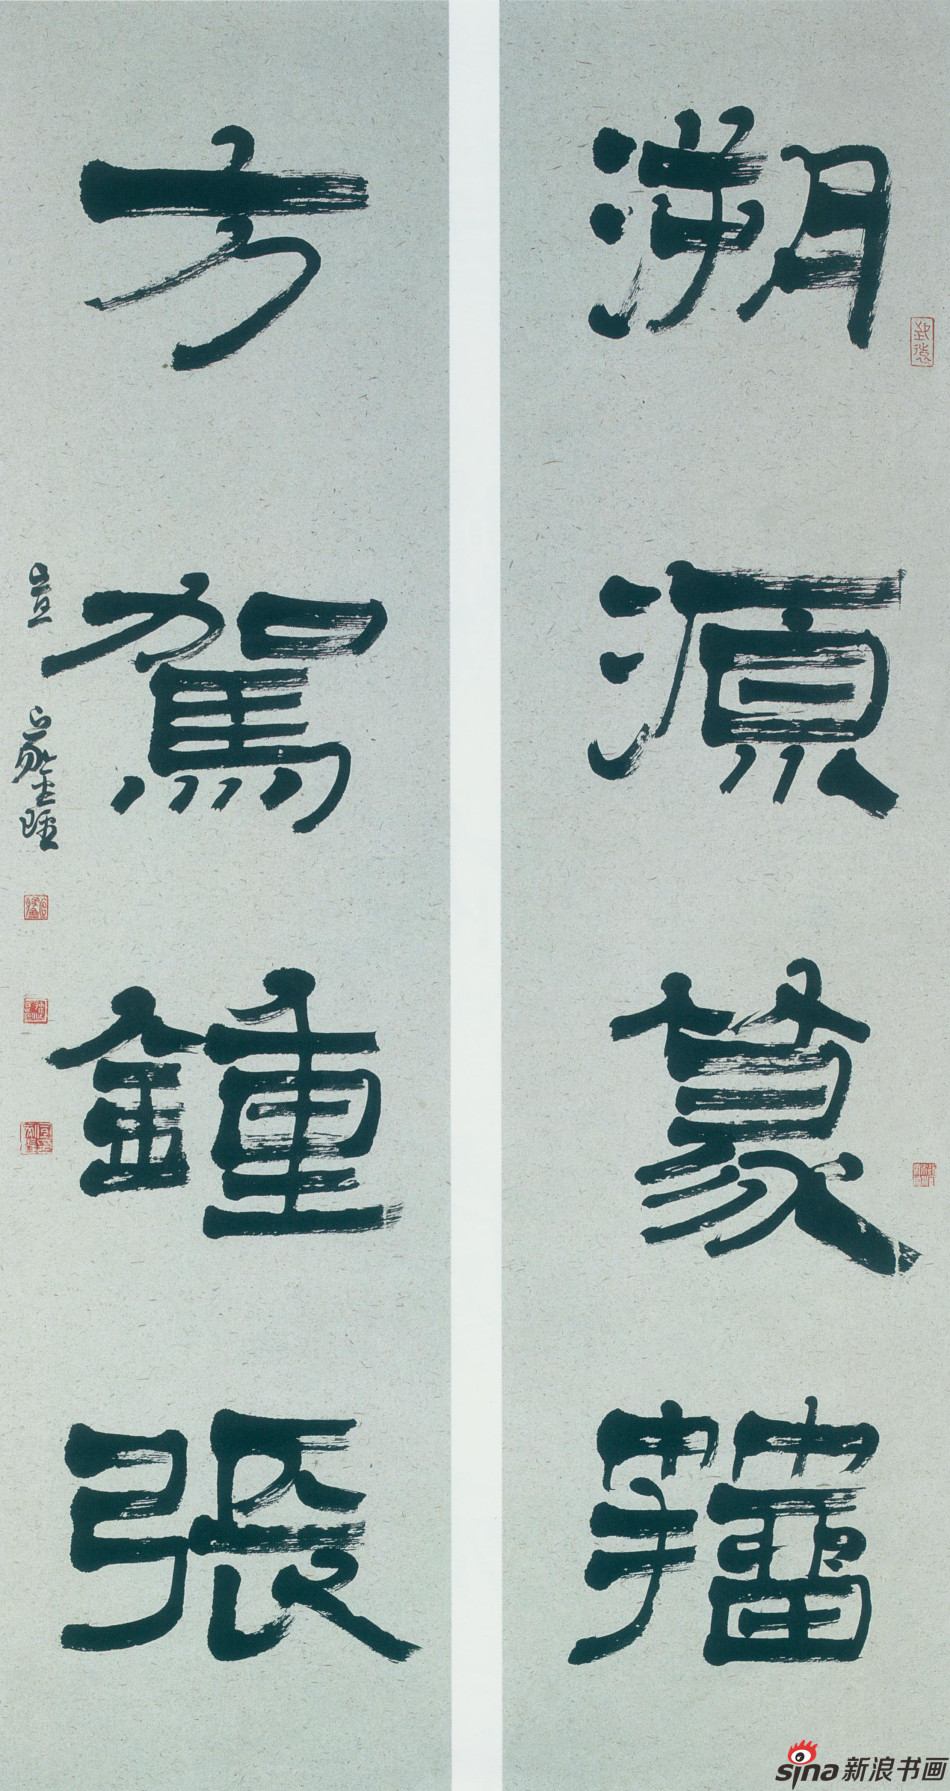 溯源篆籀
方駕鍾張
sina新浪书画